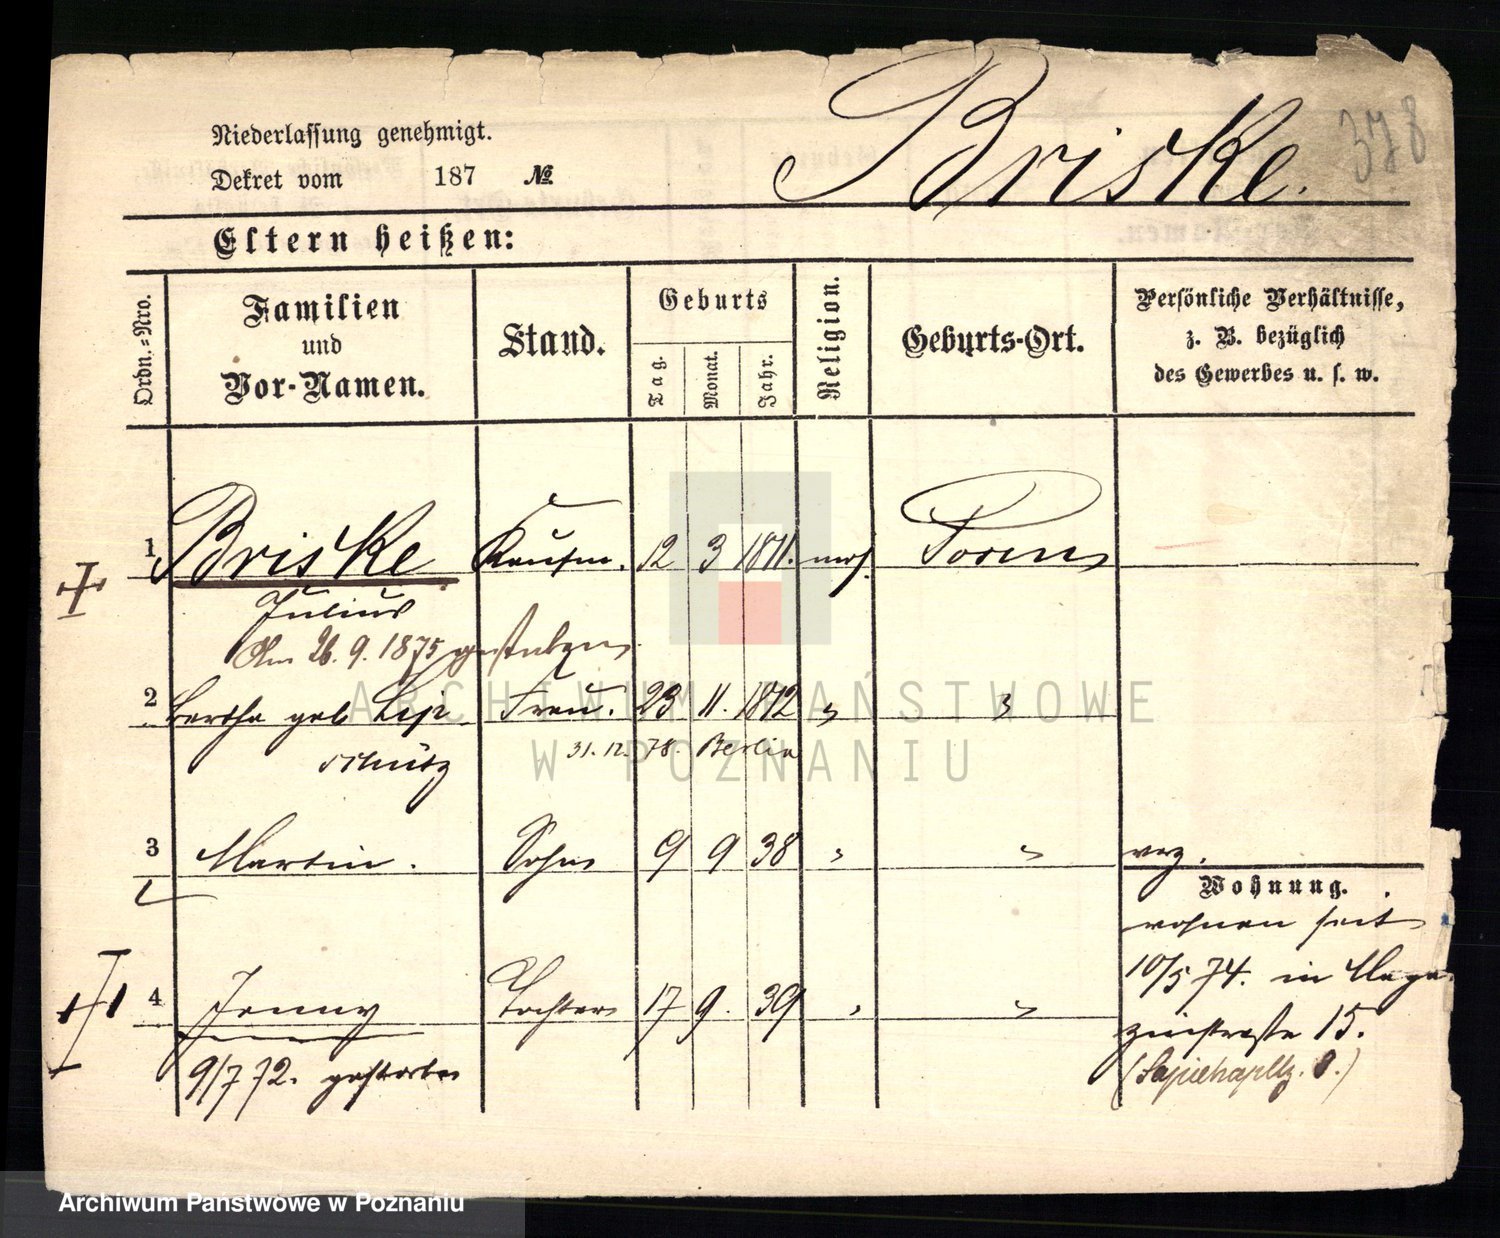 Briske.
378
Niederlassung genehmigt.
Dekret vom 187 №
Eltern heißen:
Ordn.=Nro.
Familien
und
Vor-Namen.
Stand.
Geburts
Tag.
Monat.
Jahr.
Religion.
Geburts-Ort.
Persönliche Verhältnisse,
z. B. bezüglich
des Gewerbes u. s. w.
1 Briske Kaufm. 12 3 1811. mos. Posen
Julius
Am 26. 9. 1875 gestorben
2 Bertha geb. Lip Frau. 23 11. 1812 " "
schütz 31. 12. 78. Berlin
3 Martin. Sohn 9 9 38 " " verz.
Wohnung.
wohnen seit
10/5 74. in Maga
4 Jenny Tochter 17 9. 39 " "
zinstraße 15.
9/7 72. gestorben
(Sapiehapltz. 8.)
ARCHIWUM PAŃSTWOWE
W POZNANIU
Archiwum Państwowe w Poznaniu